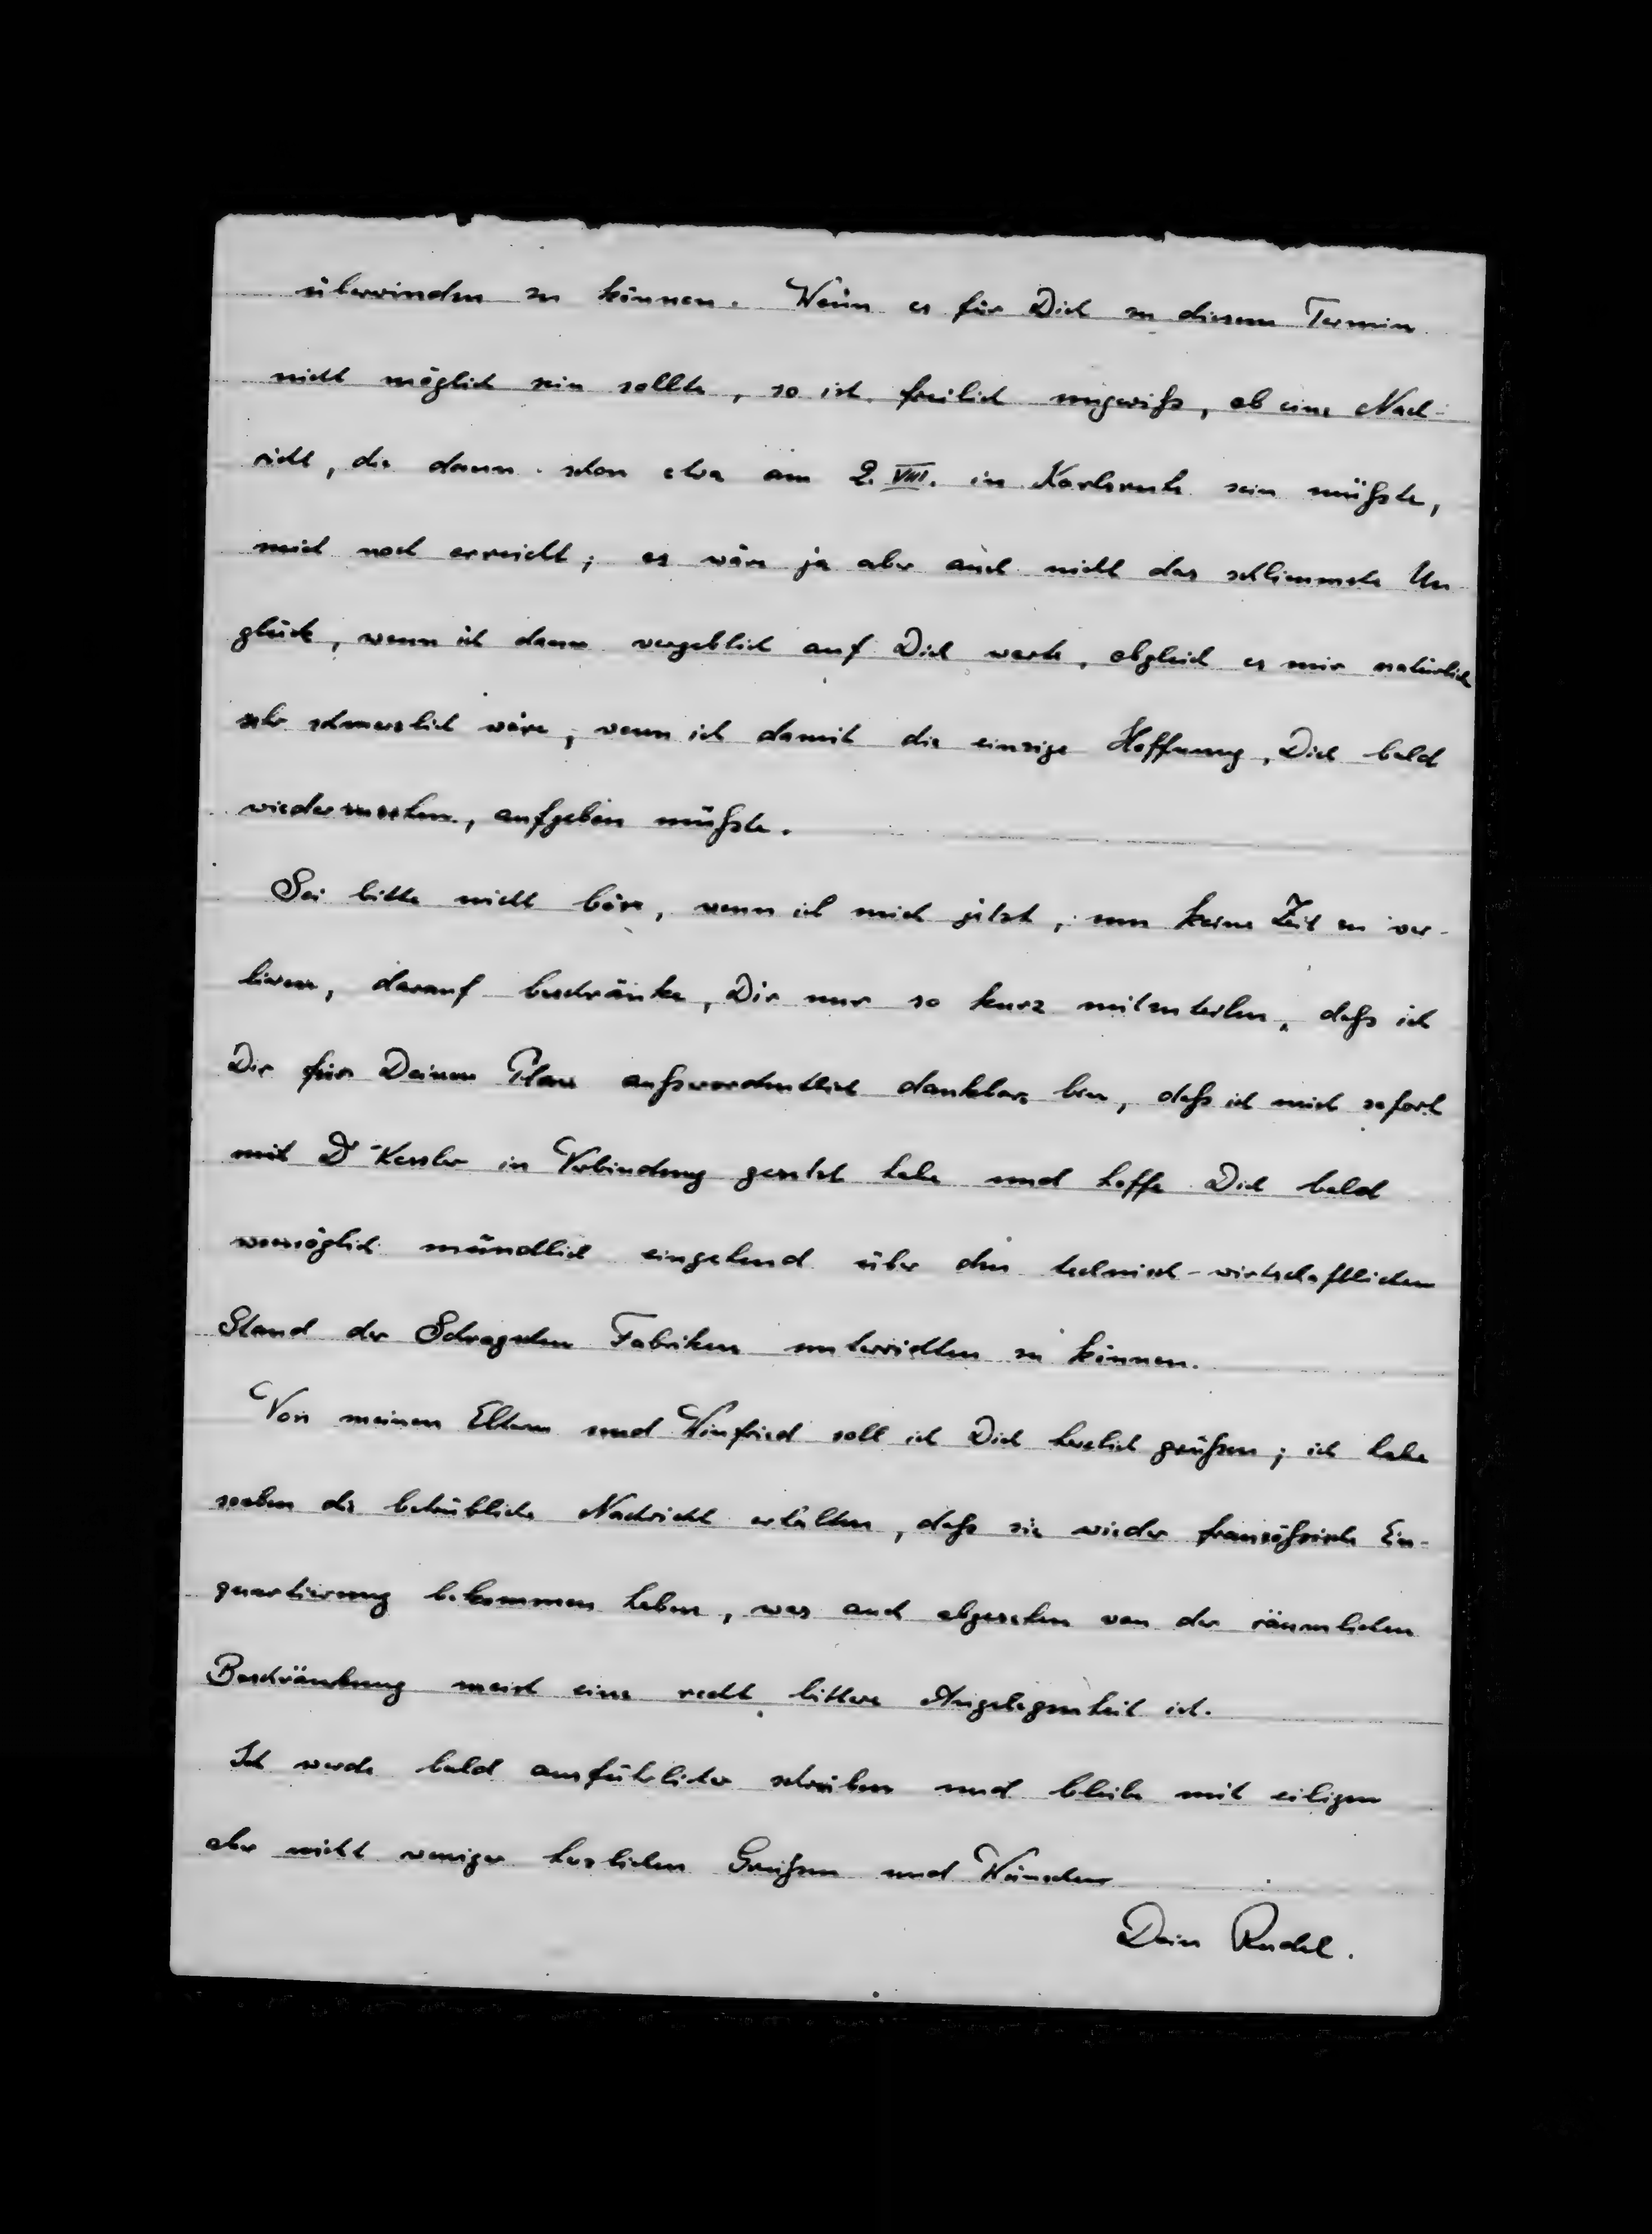 überwinden zu können. Wenn es für Dich zu diesem Termin
nicht möglich sein sollte, so ist freilich ungewiß, ob eine Nach-
richt, die dann schon etwa am 2. VIII. in Karlsruhe sein müßte,
mich noch erreicht; es wäre ja aber auch nicht das schlimmste Un
glück, wenn ich dann vergeblich auf Dich warte, obgleich es mir natürlich
sehr schmerzlich wäre, wenn ich damit die einzige Hoffnung, Dich bald
wiederzusehen, aufgeben müßte.
Sei bitte nicht böse, wenn ich mich jetzt, um keine Zeit zu ver-
lieren, darauf beschränke, Dir nur so kurz mitzuteilen, daß ich
Dir für Deinen Plan außerordentlich dankbar bin, daß ich mich sofort
mit Dr Kessler in Verbindung gesetzt habe und hoffe Dich bald
womöglich mündlich eingehend über den technisch-wirtschaftlichen
Stand der Fabriken unterrichten zu können.
Von meinen Eltern und Winfried soll ich Dich herzlich grüßen; ich habe
soeben die betrübliche Nachricht erhalten, daß sie wieder französische Ein-
quartierung bekommen haben, was auch abgesehen von der räumlichen
Beschränkung meist eine recht bittere Angelegenheit ist.
Ich werde bald ausführlicher schreiben und bleibe mit eiligen
aber nicht weniger herzlichen Grüßen und Wünschen
Dein Rudel.